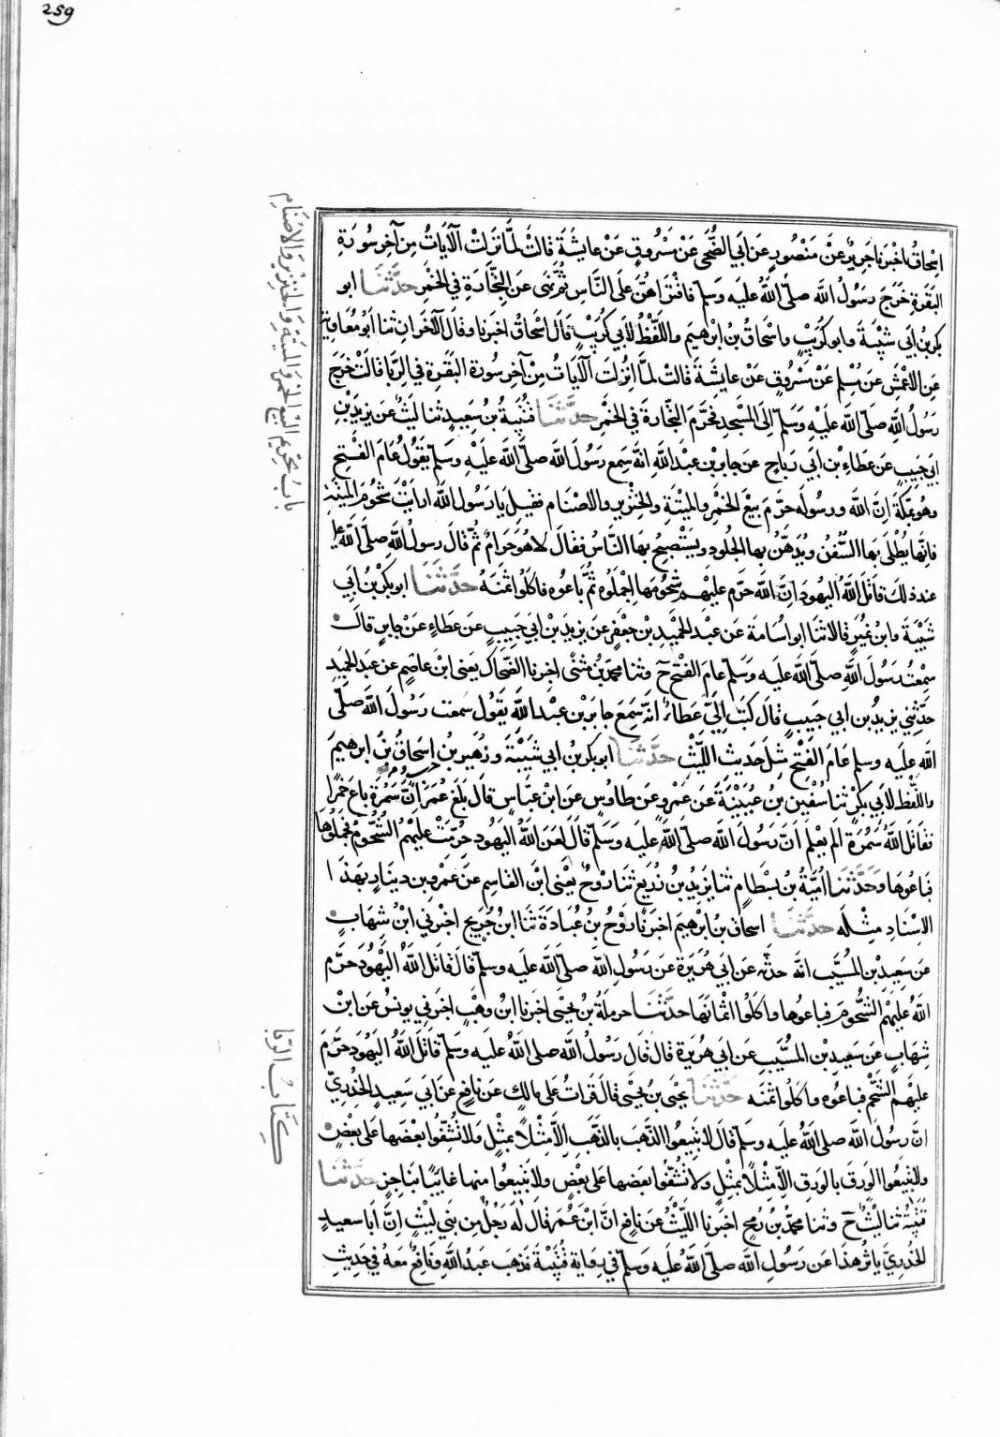 259
اسحاق اخبرنا جرير عن منصور عن ابي الضحى عن مسروق عن عايشة قالت لما نزلت الآيات من آخر سورة
البقرة خرج رسول الله صلى الله عليه وسلم فاقترأهن على الناس ثم نهى عن التجارة في الخمر حدثنا ابو
بكر بن ابي شيبة وابو كريب واسحاق بن ابرهيم واللفظ لابي كريب قال اسحاق اخبرنا وقال الآخران ثنا ابو معاوية
عن الاعمش عن مسلم عن مسروق عن عايشة قالت لما انزلت الآيات من آخر سورة البقرة في الربا قالت خرج
رسول الله صلى الله عليه وسلم الى المسجد فحرم التجارة في الخمر حدثنا قتيبة بن سعيد ثنا ليث عن يزيد بن
ابي حبيب عن عطاء بن ابي رباح عن جابر بن عبد الله انه سمع رسول الله صلى الله عليه وسلم يقول عام الفتح
وهو بمكة ان الله ورسوله حرم بيع الخمر والميتة والخنزير والاصنام فقيل يا رسول الله ارايت شحوم الميتة
فانها يطلى بها السفن ويدهن بها الجلود ويستصبح بها الناس فقال لا هو حرام ثم قال رسول الله صلى الله
عند ذلك قاتل الله اليهود ان الله حرم عليهم شحومها اجملوه ثم باعوه فاكلوا ثمنه حدثنا ابو بكر بن ابي
شيبة وابن نمير قالا ثنا ابو اسامة عن عبد الحميد بن جعفر عن يزيد بن ابي حبيب عن عطاء عن جابر قال
سمعت رسول الله صلى الله عليه وسلم عام الفتح ح وثنا محمد بن مثنى اخبرنا الضحاك يعنى ابن عاصم عن عبد الحميد
حدثني يزيد بن ابي حبيب قال كتب الي عطاء انه سمع جابر بن عبد الله يقول سمعت رسول الله صلى
الله عليه وسلم عام الفتح مثل حديث الليث حدثنا ابو بكر بن ابي شيبة وزهير بن حرب واسحاق بن ابرهيم
واللفظ لابي بكر ثنا سفين بن عيينة عن عمرو عن طاوس عن ابن عباس قال بلغ عمر ان سمرة باع خمرا
فقاتل الله سمرة الم يعلم ان رسول الله صلى الله عليه وسلم قال لعن الله اليهود حرمت عليهم الشحوم فجملوها
فباعوها وحدثنا امية بن بسطام ثنا يزيد بن زريع ثنا روح يعنى ابن القاسم عن عمرو بن دينار بهذا
الاسناد مثله حدثنا اسحاق بن ابرهيم اخبرنا روح بن عبادة ثنا ابن جريج اخبرني ابن شهاب
عن سعيد بن المسيب انه حدثه عن ابي هريرة عن رسول الله صلى الله عليه وسلم قال قاتل الله اليهود حرم
الله عليهم الشحوم فباعوها واكلوا اثمانها حدثنا حرملة بن يحيى اخبرنا ابن وهب اخبرني يونس عن ابن
شهاب عن سعيد بن المسيب عن ابي هريرة قال قال رسول الله صلى الله عليه وسلم قاتل الله اليهود حرم
عليهم الشحم فباعوه واكلوا ثمنه حدثنا يحيى بن يحيى قال قرات على مالك عن نافع عن ابي سعيد الخدري
ان رسول الله صلى الله عليه وسلم قال لا تبيعوا الذهب بالذهب الا مثلا بمثل ولا تشفوا بعضها على بعض
ولا تبيعوا الورق بالورق الا مثلا بمثل ولا تشفوا بعضها على بعض ولا تبيعوا منها غايبا بناجز حدثنا
قتيبة ثنا ليث ح وثنا محمد بن رمح اخبرنا الليث عن نافع ان ابن عمر قال له رجل من بني ليث ان ابا سعيد
الخدري ياثر هذا عن رسول الله صلى الله عليه وسلم في رواية قتيبة فذهب عبد الله ونافع معه في حديث
باب تحريم البيع الخمر والميتة والخنزير والاصنام
كتاب الربا